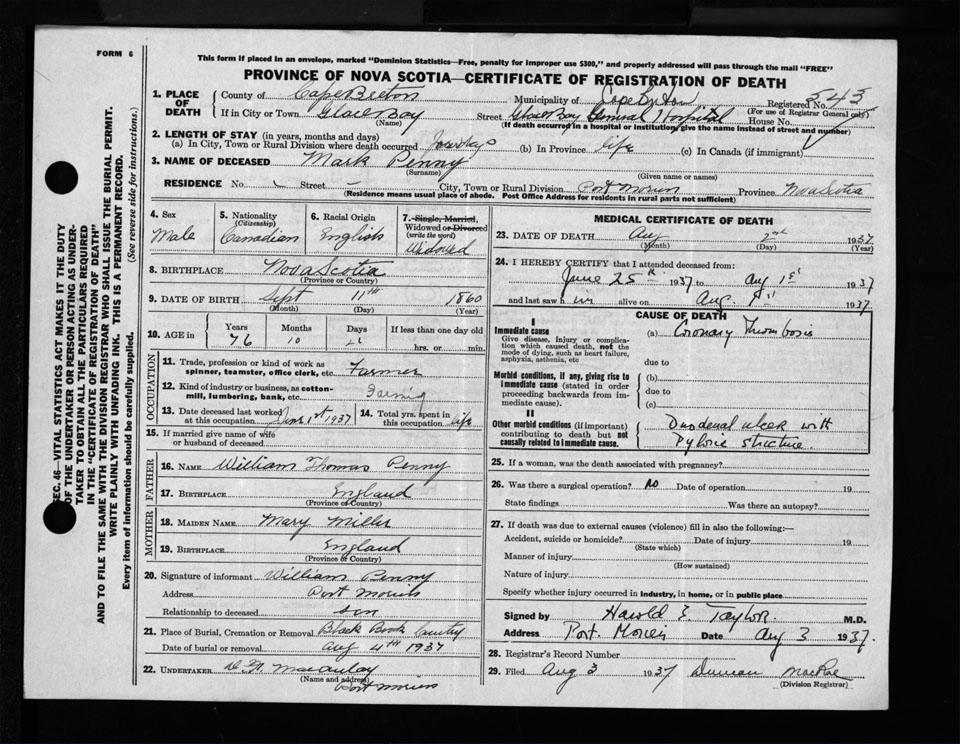 FORM 6
SEC. 46—VITAL STATISTICS ACT MAKES IT THE DUTY
OF THE UNDERTAKER OR PERSON ACTING AS UNDER-
TAKER TO OBTAIN ALL THE PARTICULARS REQUIRED
IN THE "CERTIFICATE OF REGISTRATION OF DEATH"
AND TO FILE THE SAME WITH THE DIVISION REGISTRAR WHO SHALL ISSUE THE BURIAL PERMIT.
WRITE PLAINLY WITH UNFADING INK. THIS IS A PERMANENT RECORD.
Every item of information should be carefully supplied. (See reverse side for instructions.)
This form if placed in an envelope, marked "Dominion Statistics—Free, penalty for improper use $300," and properly addressed will pass through the mail "FREE"
PROVINCE OF NOVA SCOTIA—CERTIFICATE OF REGISTRATION OF DEATH
1. PLACE OF DEATH County of Cape Breton Municipality of Cape Breton Registered No. 543
(For use of Registrar General only)
If in City or Town Glace Bay Street Glace Bay General Hospital House No.
(Name) (If death occurred in a hospital or institution, give the name instead of street and number)
2. LENGTH OF STAY (in years, months and days)
(a) In City, Town or Rural Division where death occurred days (b) In Province life (c) In Canada (if immigrant)
3. NAME OF DECEASED Mark Penny
(Surname) (Given name or names)
RESIDENCE No. Street City, Town or Rural Division Port Morien Province Nova Scotia
(Residence means usual place of abode. Post Office Address for residents in rural parts not sufficient)
4. Sex Male
5. Nationality (Citizenship) Canadian
6. Racial Origin English
7. Single, Married, Widowed or Divorced (write the word) Widowed
8. BIRTHPLACE Nova Scotia
(Province or Country)
9. DATE OF BIRTH Sept 11th 1860
(Month) (Day) (Year)
10. AGE in Years 76 Months 10 Days If less than one day old hrs. or min.
OCCUPATION
11. Trade, profession or kind of work as spinner, teamster, office clerk, etc. Farmer
12. Kind of industry or business, as cotton-mill, lumbering, bank, etc. Farming
13. Date deceased last worked at this occupation 1st 1937
14. Total yrs. spent in this occupation life
15. If married give name of wife or husband of deceased
FATHER
16. NAME William Thomas Penny
17. BIRTHPLACE England
(Province or Country)
MOTHER
18. MAIDEN NAME Mary Miller
19. BIRTHPLACE England
(Province or Country)
20. Signature of informant William Penny
Address Port Morien
Relationship to deceased son
21. Place of Burial, Cremation or Removal Black Brook
Date of burial or removal Aug 4th 1937
22. UNDERTAKER Macaulay
(Name and address) Port Morien
MEDICAL CERTIFICATE OF DEATH
23. DATE OF DEATH Aug 2nd 1937
(Month) (Day) (Year)
24. I HEREBY CERTIFY that I attended deceased from:
June 25th 1937 to Aug 1st 1937
and last saw him alive on Aug. 1st 1937.
CAUSE OF DEATH
I
Immediate cause
Give disease, injury or complication which caused death, not the mode of dying, such as heart failure, asphyxia, asthenia, etc
(a) Coronary Thrombosis
due to
Morbid conditions, if any, giving rise to immediate cause (stated in order proceeding backwards from immediate cause).
(b)
due to
(c)
II
Other morbid conditions (if important) contributing to death but not causally related to immediate cause.
Duodenal ulcer with
Pyloric stricture
25. If a woman, was the death associated with pregnancy?
26. Was there a surgical operation? no Date of operation 19
State findings Was there an autopsy?
27. If death was due to external causes (violence) fill in also the following:—
Accident, suicide or homicide? Date of injury 19
(State which)
Manner of injury
(How sustained)
Nature of injury
Specify whether injury occurred in industry, in home, or in public place
Signed by Harold E. Taylor M.D.
Address Port. Morien Date Aug 3 1937.
28. Registrar's Record Number
29. Filed Aug 3 1937 Duncan MacRae
(Division Registrar)